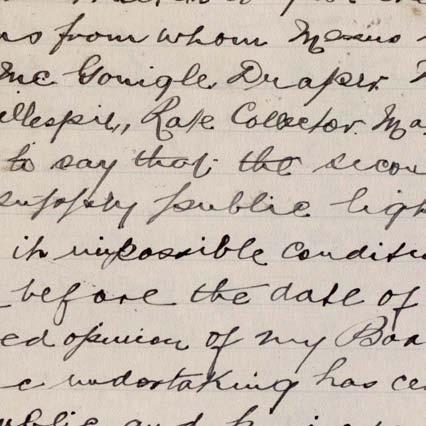 from whom Messrs
Mc Gonigle, Draper
illespie, Rate Collector Ma
to say that the secon
supply public ligh
it impossible conditi
before the date of
ed opinion of my Boa
undertaking has ce
and